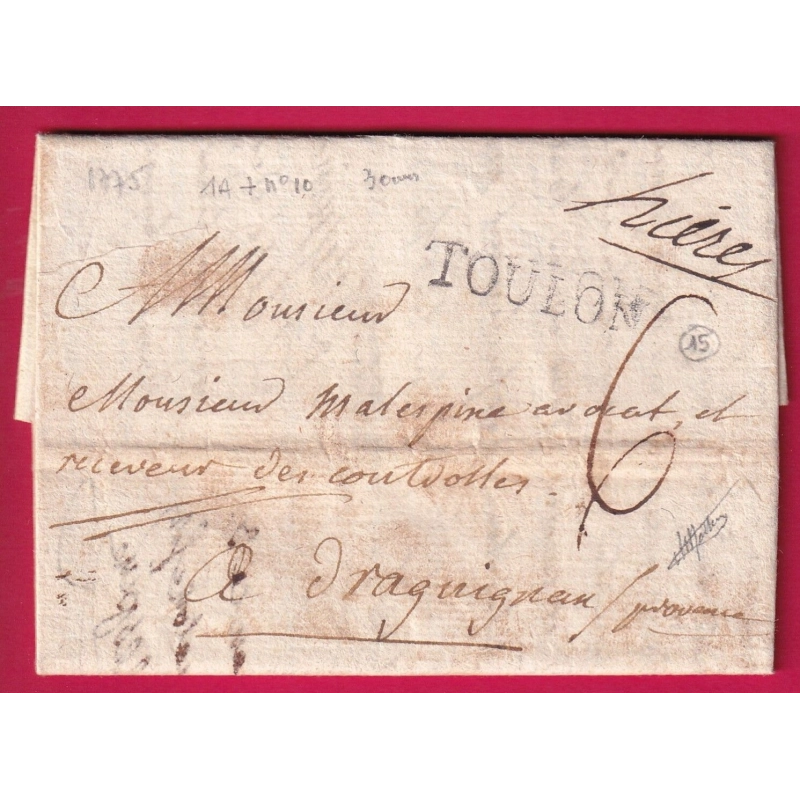 1775 1A + n° 10
hieres
TOULON
A Monsieur
6
15
Monsieur Malespine avocat, et
receveur des controlles.
a draguignan / provence